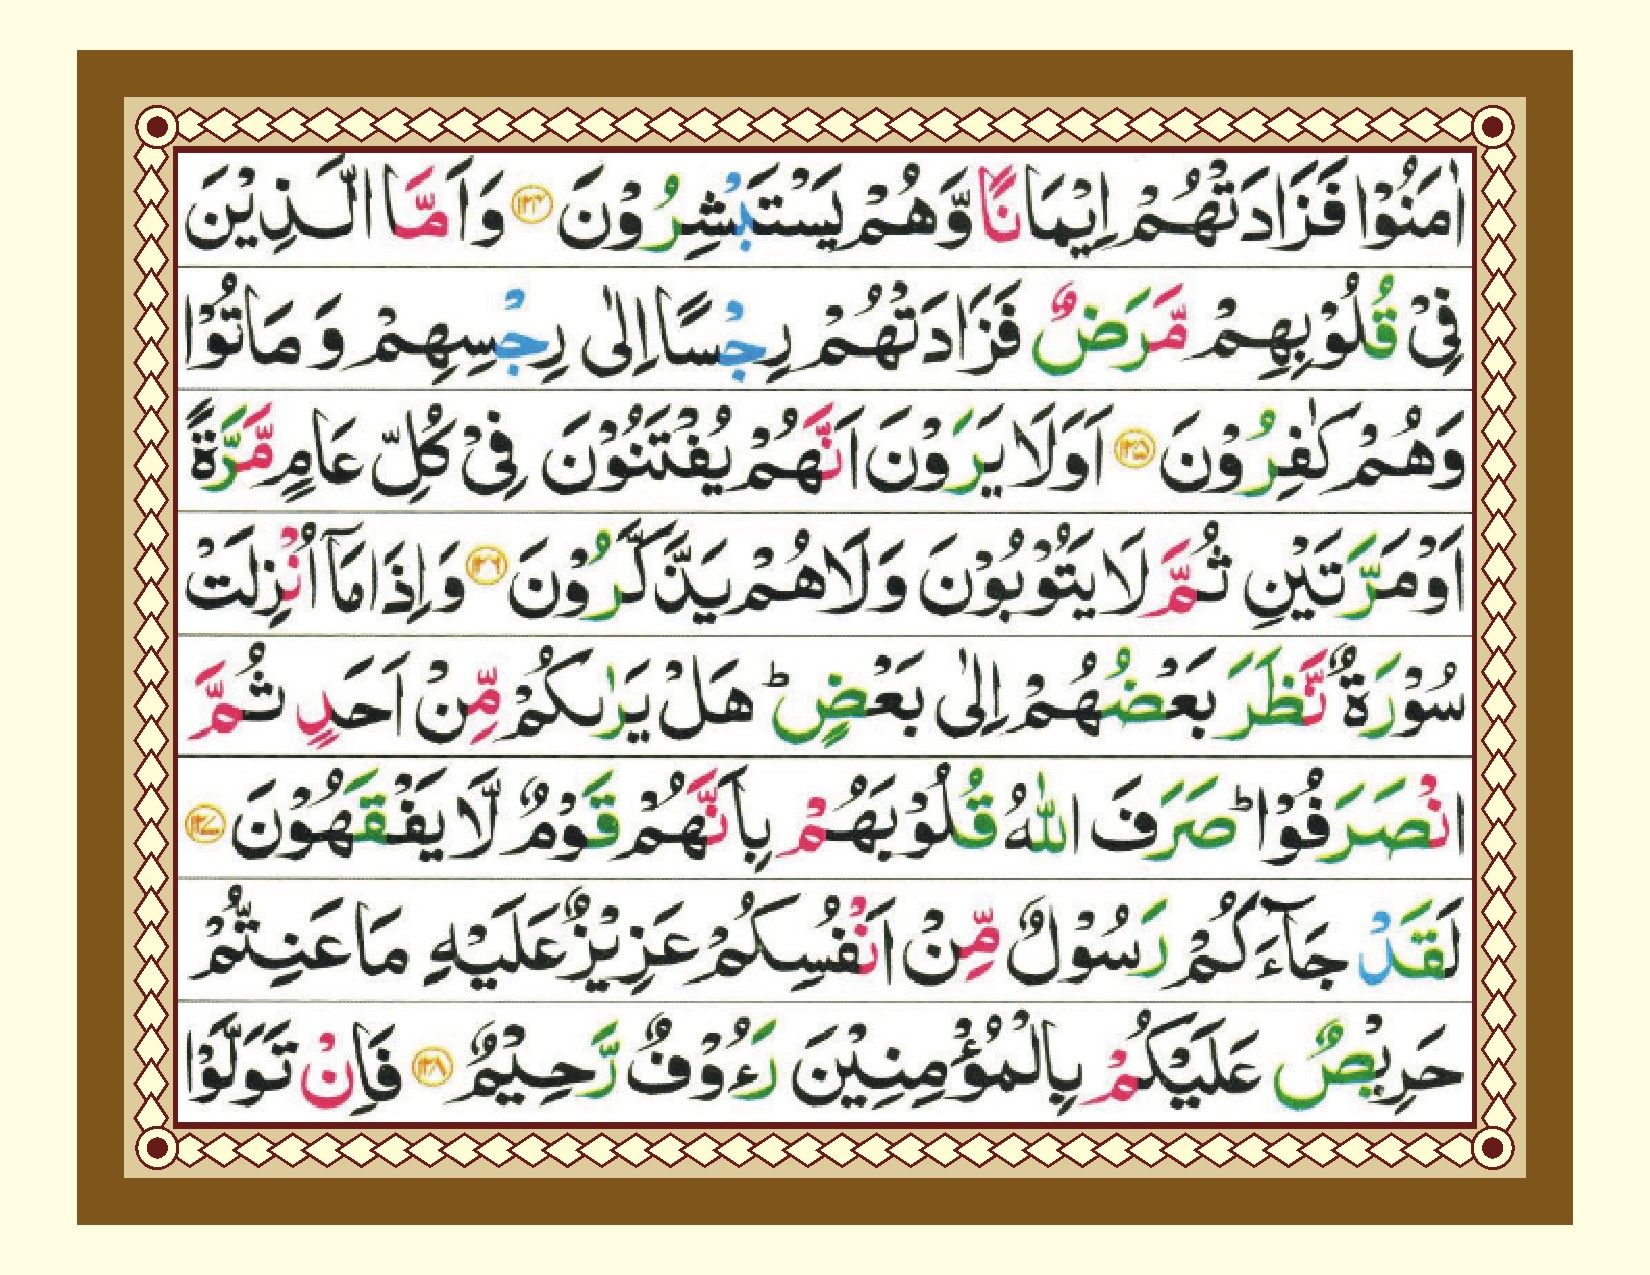 اٰمَنُوْا فَزَادَتْهُمْ اِيْمَانًا وَّهُمْ يَسْتَبْشِرُوْنَ ﴿۱۲۴﴾ وَاَمَّا الَّذِيْنَ
فِىْ قُلُوْبِهِمْ مَّرَضٌ فَزَادَتْهُمْ رِجْسًا اِلٰى رِجْسِهِمْ وَ مَاتُوْا
وَهُمْ كٰفِرُوْنَ ﴿۱۲۵﴾ اَوَلَا يَرَوْنَ اَنَّهُمْ يُفْتَنُوْنَ فِىْ كُلِّ عَامٍ مَّرَّةً
اَوْ مَرَّتَيْنِ ثُمَّ لَا يَتُوْبُوْنَ وَلَا هُمْ يَذَّكَّرُوْنَ ﴿۱۲۶﴾ وَاِذَا مَاۤ اُنْزِلَتْ
سُوْرَةٌ نَّظَرَ بَعْضُهُمْ اِلٰى بَعْضٍ ؕ هَلْ يَرٰىكُمْ مِّنْ اَحَدٍ ثُمَّ
انْصَرَفُوْا ؕ صَرَفَ اللّٰهُ قُلُوْبَهُمْ بِاَنَّهُمْ قَوْمٌ لَّا يَفْقَهُوْنَ ﴿۱۲۷﴾
لَقَدْ جَآءَكُمْ رَسُوْلٌ مِّنْ اَنْفُسِكُمْ عَزِيْزٌ عَلَيْهِ مَا عَنِتُّمْ
حَرِيْصٌ عَلَيْكُمْ بِالْمُؤْمِنِيْنَ رَءُوْفٌ رَّحِيْمٌ ﴿۱۲۸﴾ فَاِنْ تَوَلَّوْا